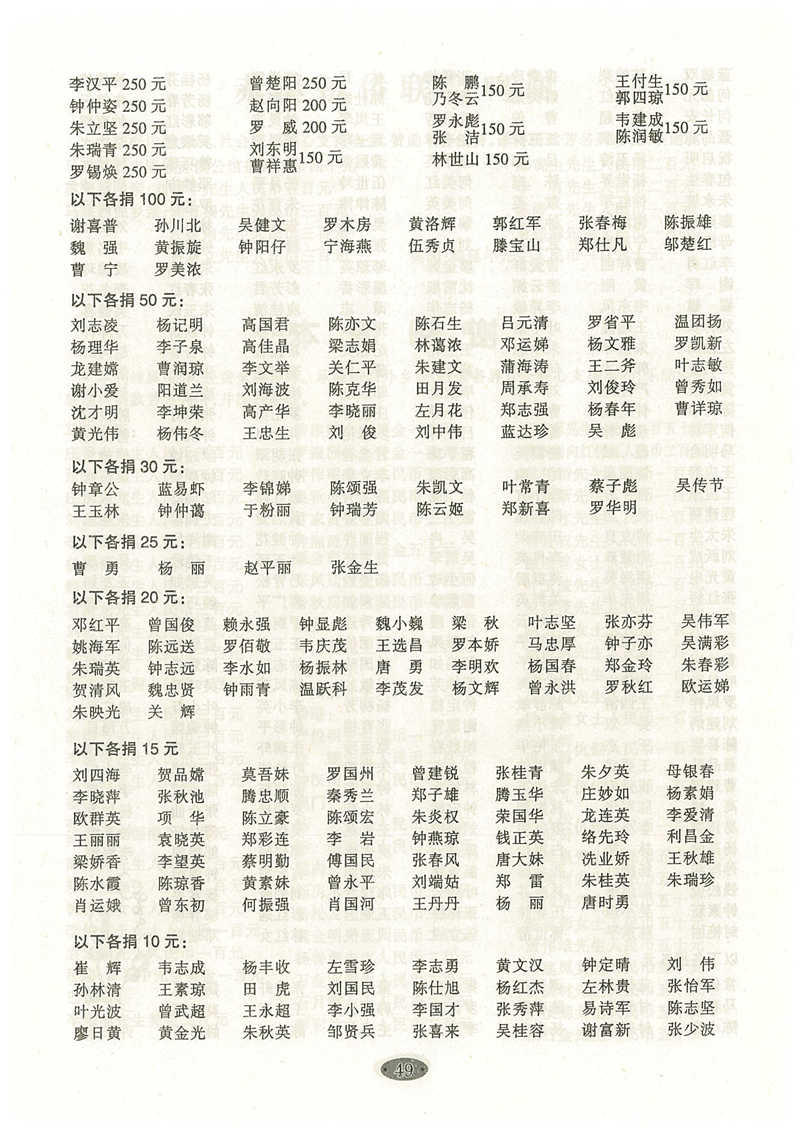 李汉平 250 元　曾楚阳 250 元　陈　鹏 乃冬云 150 元　王付生 郭四琼 150 元
钟仲姿 250 元　赵向阳 200 元
朱立坚 250 元　罗　威 200 元　罗永彪 张　洁 150 元　韦建成 陈润敏 150 元
朱瑞青 250 元　刘东明 曹祥惠 150 元
罗锡焕 250 元　林世山 150 元
以下各捐 100 元：
谢喜普　孙川北　吴健文　罗木房　黄洛辉　郭红军　张春梅　陈振雄
魏　强　黄振旋　钟阳仔　宁海燕　伍秀贞　滕宝山　郑仕凡　邬楚红
曹　宁　罗美浓
以下各捐 50 元：
刘志凌　杨记明　高国君　陈亦文　陈石生　吕元清　罗省平　温团扬
杨理华　李子泉　高佳晶　梁志娟　林蔼浓　邓运娣　杨文雅　罗凯新
龙建嫦　曹润琼　李文举　关仁平　朱建文　蒲海涛　王二斧　叶志敏
谢小爱　阳道兰　刘海波　陈克华　田月发　周承寿　刘俊玲　曾秀如
沈才明　李坤荣　高产华　李晓丽　左月花　郑志强　杨春年　曹详琼
黄光伟　杨伟冬　王忠生　刘　俊　刘中伟　蓝达珍　吴　彪
以下各捐 30 元：
钟章公　蓝易虾　李锦娣　陈颂强　朱凯文　叶常青　蔡子彪　吴传节
王玉林　钟仲蔼　于粉丽　钟瑞芳　陈云姬　郑新喜　罗华明
以下各捐 25 元：
曹　勇　杨　丽　赵平丽　张金生
以下各捐 20 元：
邓红平　曾国俊　赖永强　钟显彪　魏小巍　梁　秋　叶志坚　张亦芬　吴伟军
姚海军　陈远送　罗佰敬　韦庆茂　王选昌　罗本娇　马忠厚　钟子亦　吴满彩
朱瑞英　钟志远　李水如　杨振林　唐　勇　李明欢　杨国春　郑金玲　朱春彩
贺清风　魏忠贤　钟雨青　温跃科　李茂发　杨文辉　曾永洪　罗秋红　欧运娣
朱映光　关　辉
以下各捐 15 元
刘四海　贺品嫦　莫吾妹　罗国州　曾建锐　张桂青　朱夕英　母银春
李晓萍　张秋池　腾忠顺　秦秀兰　郑子雄　腾玉华　庄妙如　杨素娟
欧群英　项　华　陈立豪　陈颂宏　朱炎权　荣国华　龙连英　李爱清
王丽丽　袁晓英　郑彩连　李　岩　钟燕琼　钱正英　络先玲　利昌金
梁娇香　李望英　蔡明勤　傅国民　张春风　唐大妹　冼业娇　王秋雄
陈水霞　陈琼香　黄素妹　曾永平　刘端姑　郑　雷　朱桂英　朱瑞珍
肖运娥　曾东初　何振强　肖国河　王丹丹　杨　丽　唐时勇
以下各捐 10 元：
崔　辉　韦志成　杨丰收　左雪珍　李志勇　黄文汉　钟定晴　刘　伟
孙林清　王素琼　田　虎　刘国民　陈仕旭　杨红杰　左林贵　张怡军
叶光波　曾武超　王永超　李小强　李国才　张秀萍　易诗军　陈志坚
廖日黄　黄金光　朱秋英　邹贤兵　张喜来　吴桂容　谢富新　张少波
49